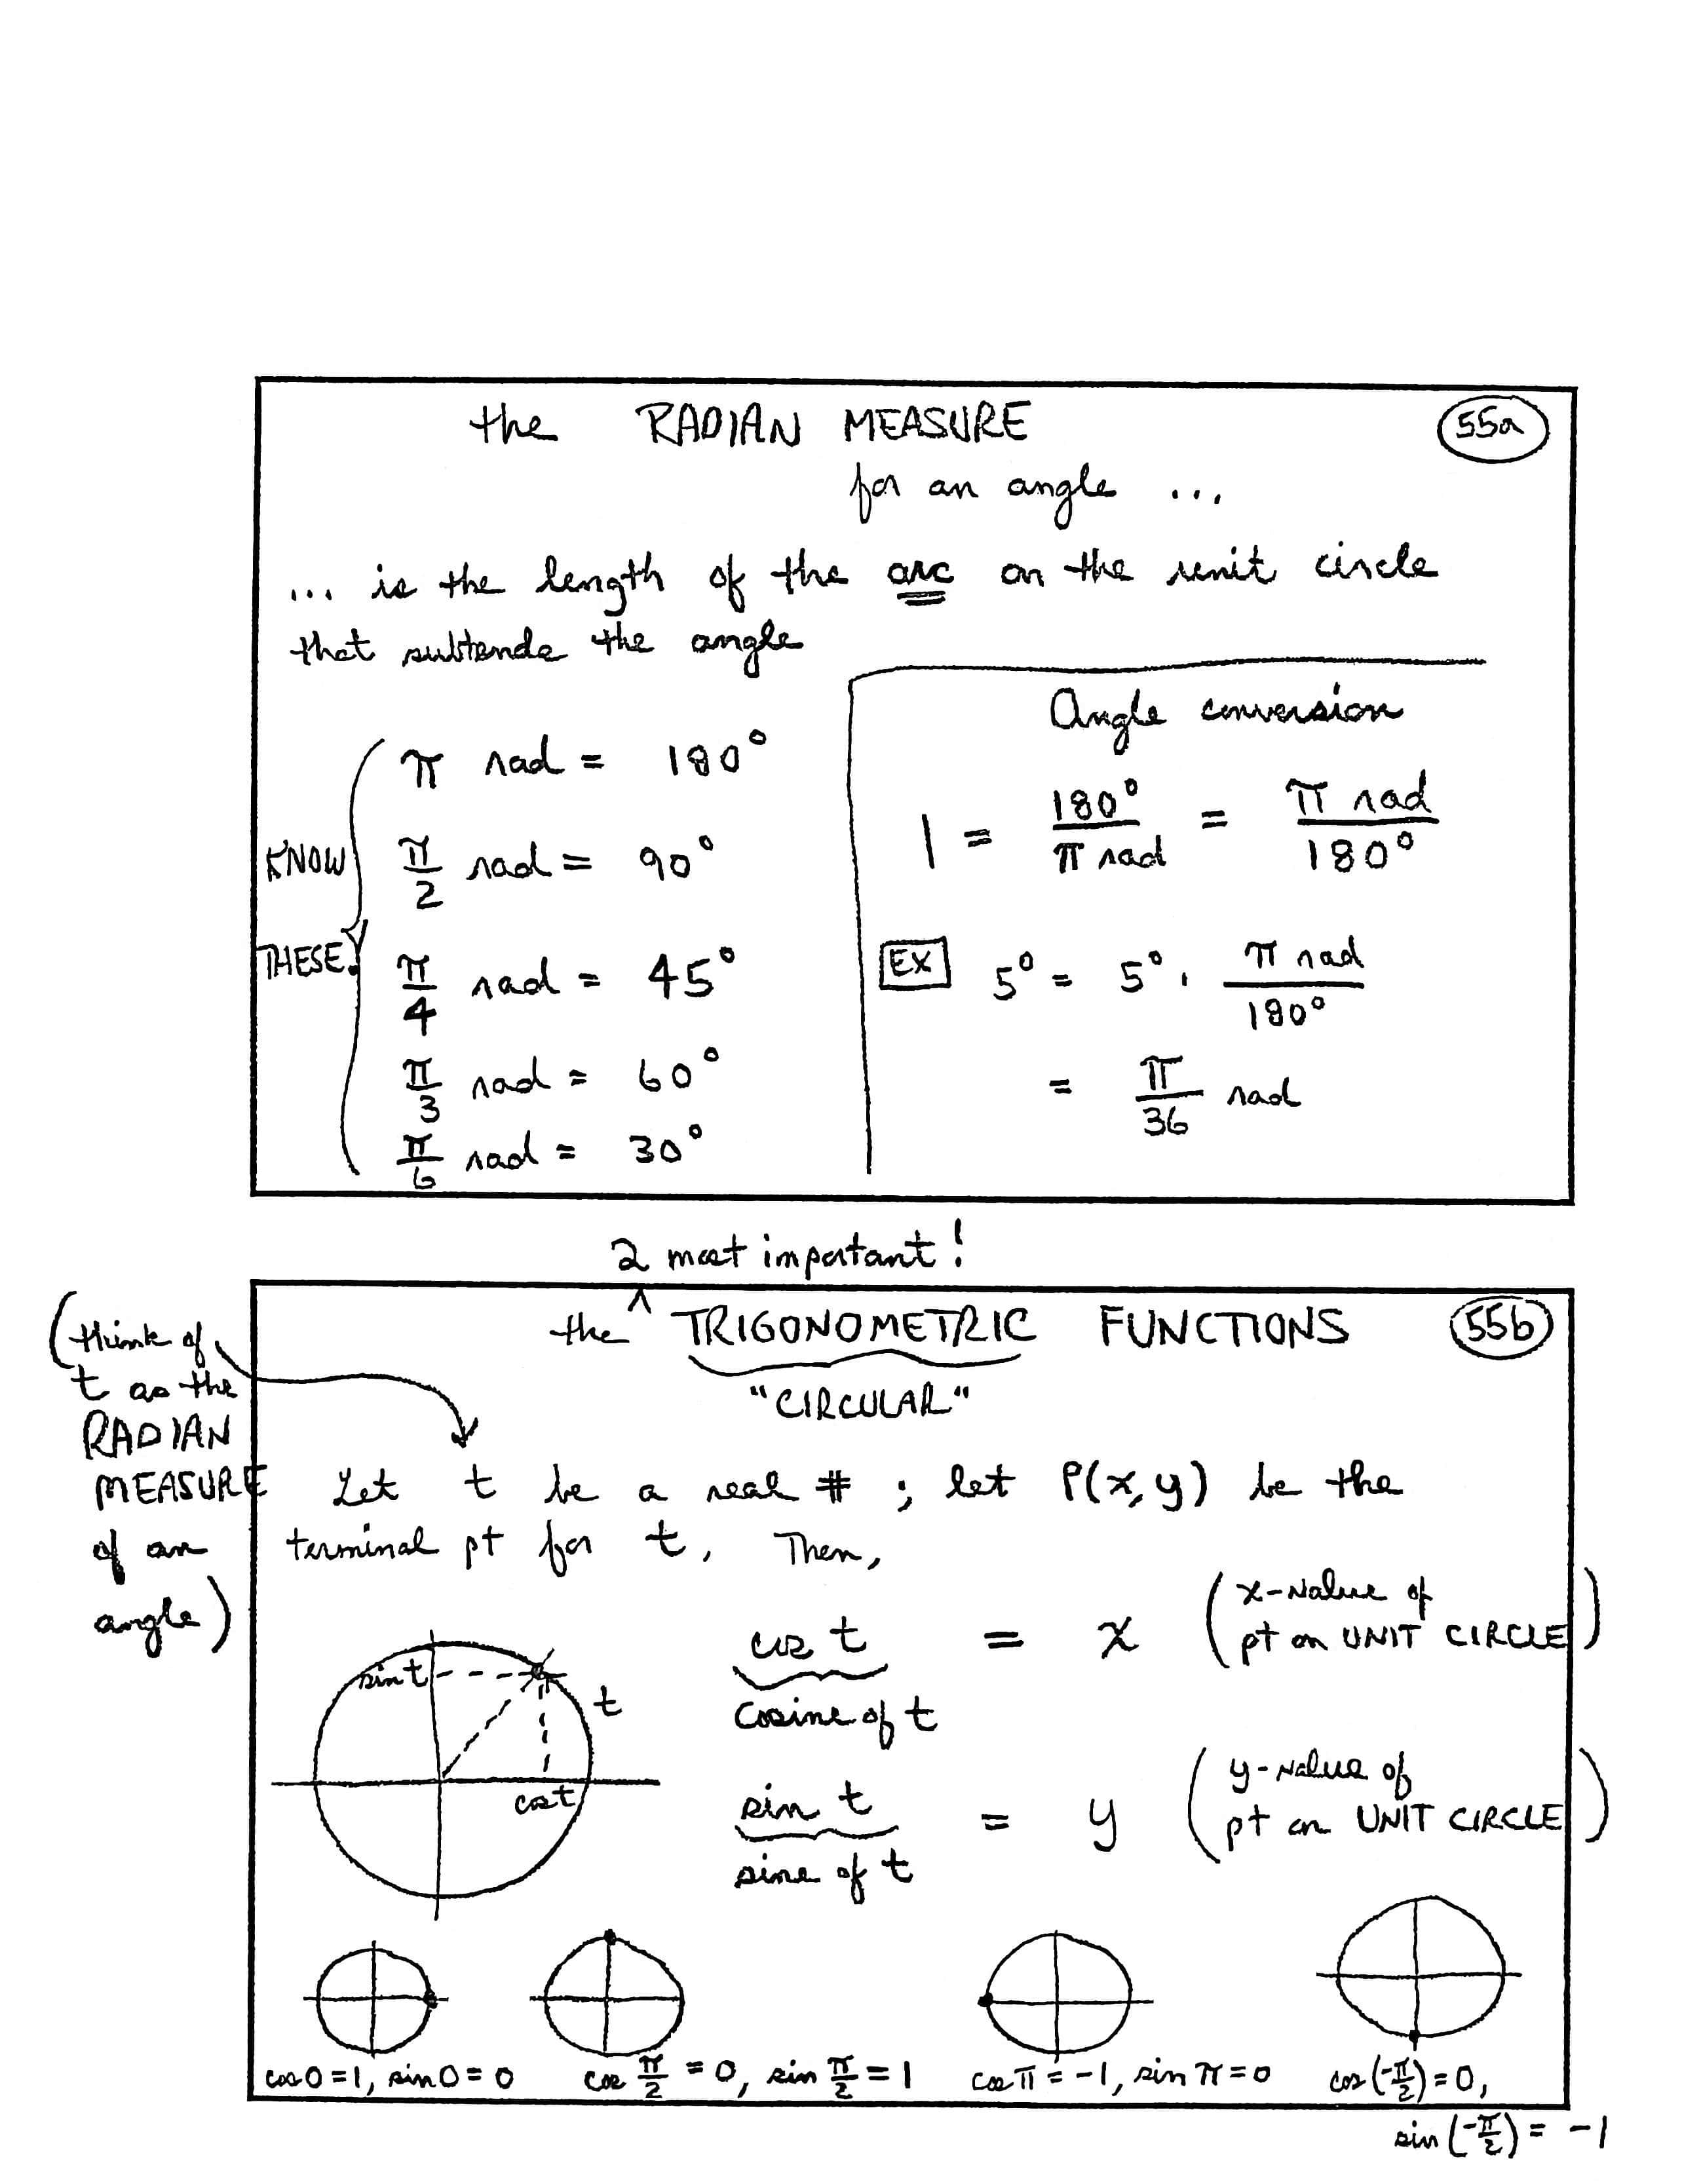 the RADIAN MEASURE 55a
for an angle ...
... is the length of the arc on the unit circle
that subtends the angle
KNOW THESE!
π rad = 180°
π/2 rad = 90°
π/4 rad = 45°
π/3 rad = 60°
π/6 rad = 30°
Angle conversion
1 = 180°/π rad = π rad/180°
EX 5° = 5° · π rad/180°
= π/36 rad
2 most important!
the ^ TRIGONOMETRIC FUNCTIONS 55b
"CIRCULAR"
(think of
t as the
RADIAN
MEASURE
of an
angle)
Let t be a real # ; let P(x,y) be the
terminal pt for t. Then,
cos t = x (x-value of
pt on UNIT CIRCLE)
cosine of t
sin t = y (y-value of
pt on UNIT CIRCLE)
sine of t
sin t
t
cos t
cos 0 = 1, sin 0 = 0
cos π/2 = 0, sin π/2 = 1
cos π = -1, sin π = 0
cos (-π/2) = 0,
sin (-π/2) = -1